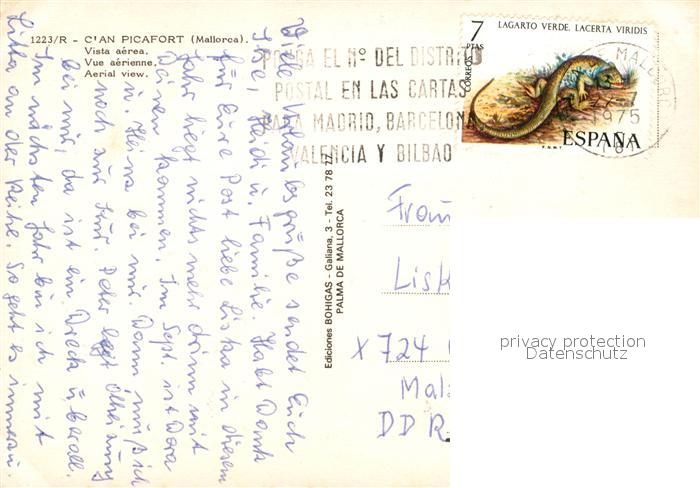 1223/R - C'AN PICAFORT (Mallorca).
Vista aérea.
Vue aérienne.
Aerial view.
PONGA EL Nº DEL DISTRITO
POSTAL EN LAS CARTAS
PARA MADRID, BARCELONA
VALENCIA Y BILBAO
7
PTAS
CORREOS
LAGARTO VERDE. LACERTA VIRIDIS
ESPAÑA
F.N.M.T.
MALLORC
1975
Viele Urlaubsgrüße sendet Euch
Ilse, Heidi u. Familie. Habt Dank
für Eure Post liebe Liska in diesem
Jahr liegt nichts mehr drinn mit
kommen. Im Sept. ist Dora
u. Heinz bei mir. Dann muß ich
noch zur Kur. Peter legt Ölheizung
bei mir, da ist ein Dreck überall.
Im nächsten Jahr bin ich mit
an der Reihe. So geht es immer.
Ediciones BOHIGAS - Galiana, 3 - Tel. 23 78 77
PALMA DE MALLORCA
Frau
Lisk
X 724
DDR
privacy protection
Datenschutz